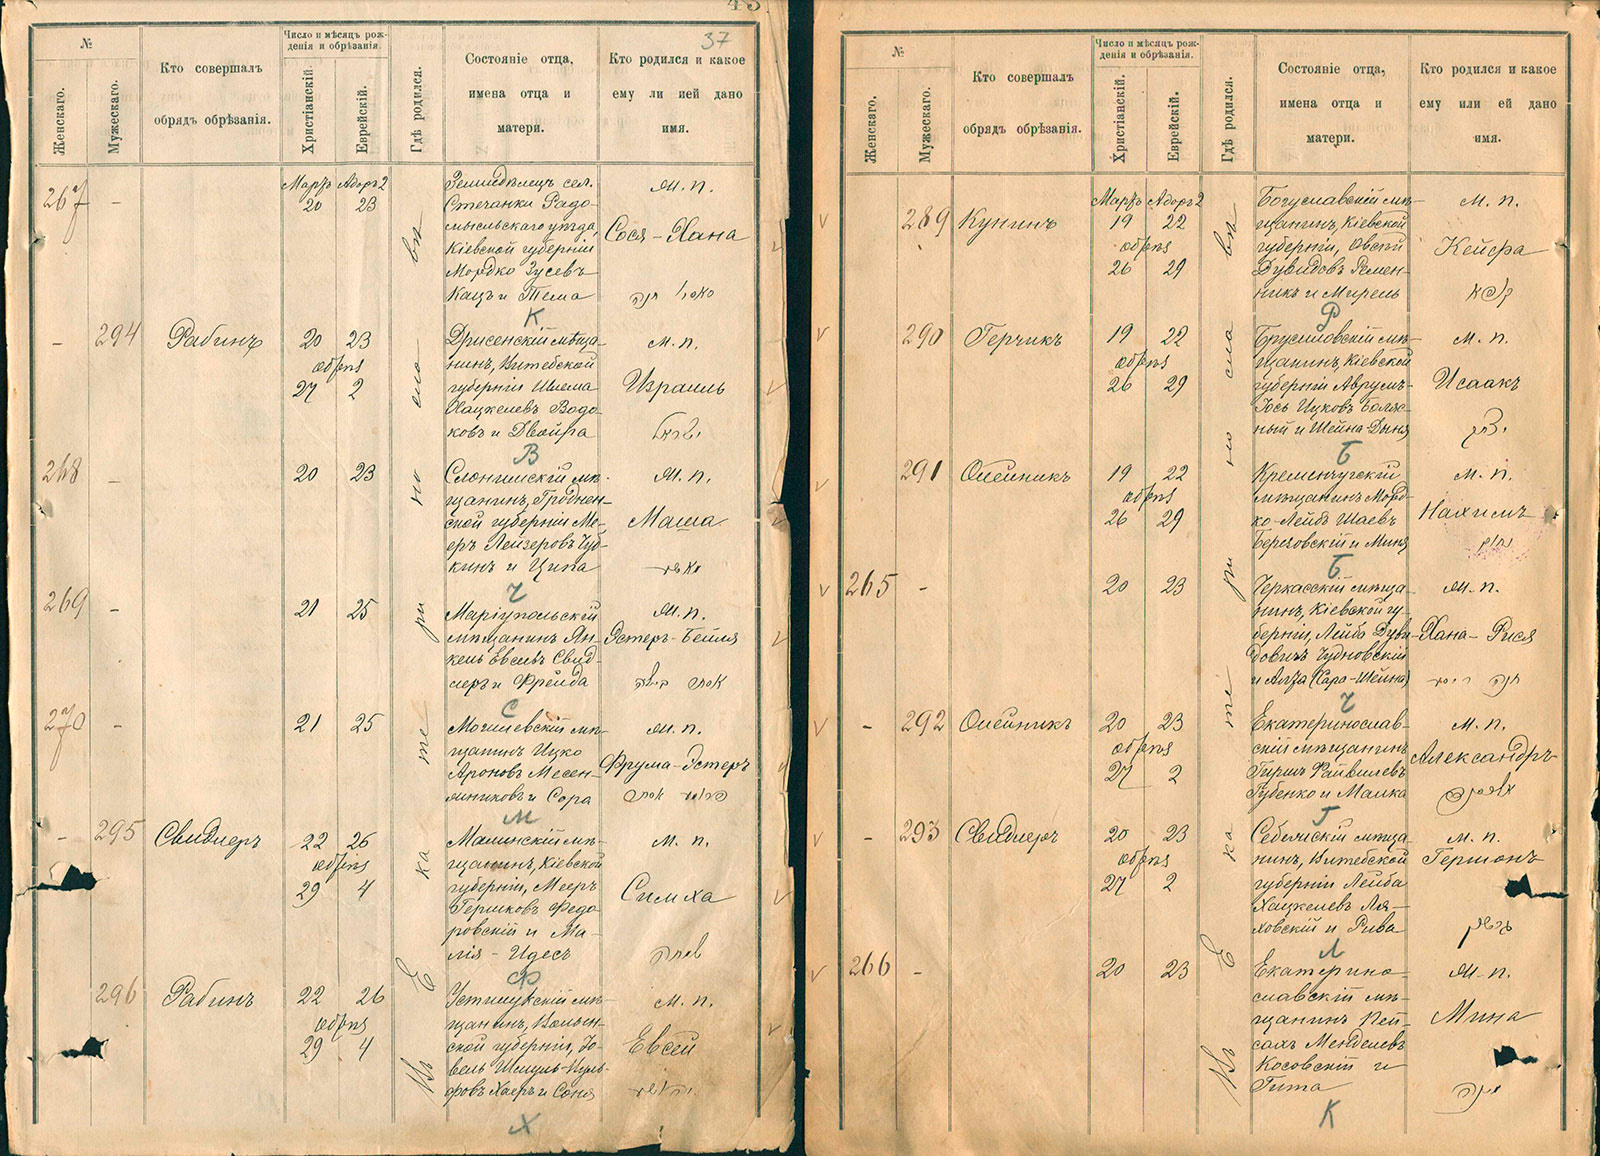 43.
37
№
Женскаго.
Мужескаго.
Кто совершалъ
обрядъ обрѣзанія.
Число и мѣсяцъ рож-
денія и обрѣзанія.
Христіанскій.
Еврейскій.
Гдѣ родился.
Состояніе отца,
имена отца и
матери.
Кто родился и какое
ему ли ией дано
имя.
Въ Екатеринославѣ
267 -
Мартъ Адоръ 2
20 23
Земледѣлецъ сел.
Стечанки Радо-
мысльскаго уѣзда,
Кіевской губерніи
Мордко Зусевъ
Кацъ и Тема
К
м. п.
Сося-Хана
חנה
- 294 Рабинъ
20 23
обрѣз
27 2
Дрисенскій мѣща-
нинъ, Витебской
губерніи Шлема
Хацкелевъ Водо-
ковъ и Двойра
В
м. п.
Израиль
ישראל
268 -
20 23
Слонимскій мѣ-
щанинъ, Гроднен-
ской губерніи Ме-
еръ Лейзеровъ Чуб-
кинъ и Ципа
Ч
м. п.
Маша
מאשע
269 -
21 25
Маріупольскій
мѣщанинъ Ян-
кель Евсеевъ Свид-
леръ и Фрейда
С
м. п.
Эстеръ-Бейля
אסתר ביילע
270 -
21 25
Могилевскій мѣ-
щанинъ Ицко
Ароновъ Месен-
жниковъ и Сора
М
м. п.
Фрума-Эстеръ
פרומע אסתר
- 295 Свидлеръ
22 26
обрѣз
29 4
Малинскій мѣ-
щанинъ, Кіевской
губерніи, Мееръ
Гершковъ Федо-
ровскій и Ма-
лія-Идесъ
Ф
м. п.
Симха
שמחה
296 Рабинъ
22 26
обрѣз
29 4
Устилугскій мѣ-
щанинъ, Волын-
ской губерніи, Іо-
вель Шмуль-Вуль-
фовъ Хаеръ и Соня
Х
м. п.
Евсей
№
Женскаго.
Мужескаго.
Кто совершалъ
обрядъ обрѣзанія.
Число и мѣсяцъ рож-
денія и обрѣзанія.
Христіанскій.
Еврейскій.
Гдѣ родился.
Состояніе отца,
имена отца и
матери.
Кто родился и какое
ему или ей дано
имя.
Въ Екатеринославѣ
289 Кунинъ
Мартъ Адоръ 2
19 22
обрѣз
26 29
Богуславскій мѣ-
щанинъ, Кіевской
губерніи, Овсей
Дувидовъ Ремен-
никъ и Мирель
Р
м. п.
Кейфа
290 Герчикъ
19 22
обрѣз
26 29
Брусиловскій мѣ-
щанинъ, Кіевской
губерніи Аврумъ-
Іось Ицковъ Боляс-
ный и Шейна-Дыня
Б
м. п.
Исаакъ
יצחק
291 Олейникъ
19 22
обрѣз
26 29
Кременчугскій
мѣщанинъ Морд-
ко-Лейбъ Шаевъ
Береговскій и Миня
Б
м. п.
Нахимъ
נחום
265 -
20 23
Черкасскій мѣща-
нинъ, Кіевской гу-
берніи, Лейба Дуви-
довичъ Чудновскій
и Алта (Сара-Шейна)
Ч
м. п.
Хана-Рися
חנה ריסע
- 292 Олейникъ
20 23
обрѣз
27 2
Екатеринослав-
скій мѣщанинъ
Гиршъ Файвишевъ
Губенко и Малка
Г
м. п.
Александръ
- 293 Свидлеръ
20 23
обрѣз
27 2
Себежскій мѣща-
нинъ, Витебской
губерніи Лейба
Хацкелевъ Ля-
ховскій и Рива
Л
м. п.
Гершонъ
גרשון
266 -
20 23
Екатерино-
славскій мѣ-
щанинъ Пей-
сахъ Менделевъ
Косовскій и
Гита
К
м. п.
Мина